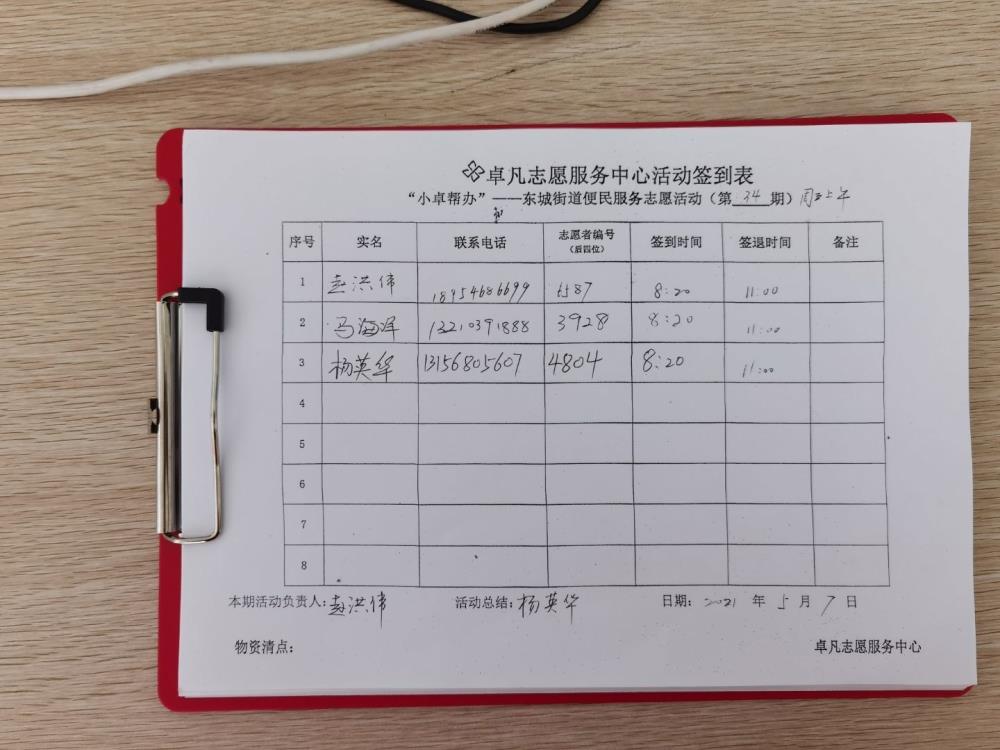 卓凡志愿服务中心活动签到表
“小卓帮办”——东城街道便民服务志愿活动（第 34 期）周五上午
序号 实名 联系电话 志愿者编号（后四位） 签到时间 签退时间 备注
1 赵洪伟 18954686699 6587 8:20 11:00
2 马海洋 13210391888 3928 8:20 11:00
3 杨英华 13156805607 4804 8:20 11:00
4
5
6
7
8
本期活动负责人：赵洪伟 活动总结：杨英华 日期：2021 年 5 月 7 日
物资清点： 卓凡志愿服务中心